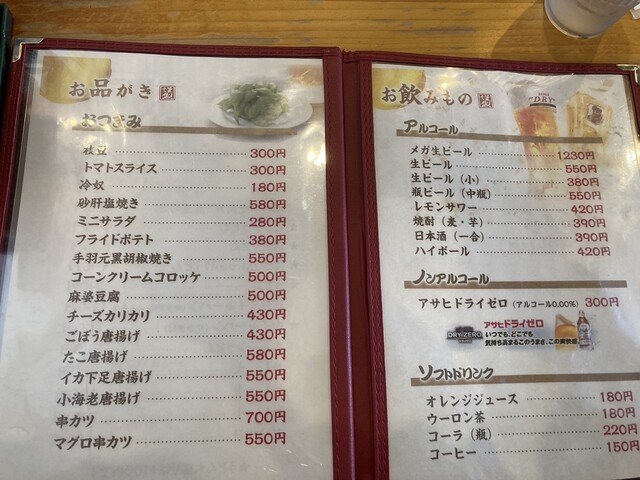 お品がき
おつまみ
枝豆 300円
トマトスライス 300円
冷奴 180円
砂肝塩焼き 580円
ミニサラダ 280円
フライドポテト 380円
手羽元黒胡椒焼き 550円
コーンクリームコロッケ 500円
麻婆豆腐 500円
チーズカリカリ 430円
ごぼう唐揚げ 430円
たこ唐揚げ 580円
イカ下足唐揚げ 550円
小海老唐揚げ 550円
串カツ 700円
マグロ串カツ 550円
お飲みもの
アルコール
メガ生ビール 1230円
生ビール 550円
生ビール（小） 380円
瓶ビール（中瓶） 550円
レモンサワー 420円
焼酎（麦・芋） 390円
日本酒（一合） 390円
ハイボール 420円
ノンアルコール
アサヒドライゼロ（アルコール0.00%） 300円
DRY ZERO
アサヒドライゼロ
いつでも、どこでも
気持ち高まるこのうまさ、この爽快感。
ソフトドリンク
オレンジジュース 180円
ウーロン茶 180円
コーラ（瓶） 220円
コーヒー 150円
"DRY"